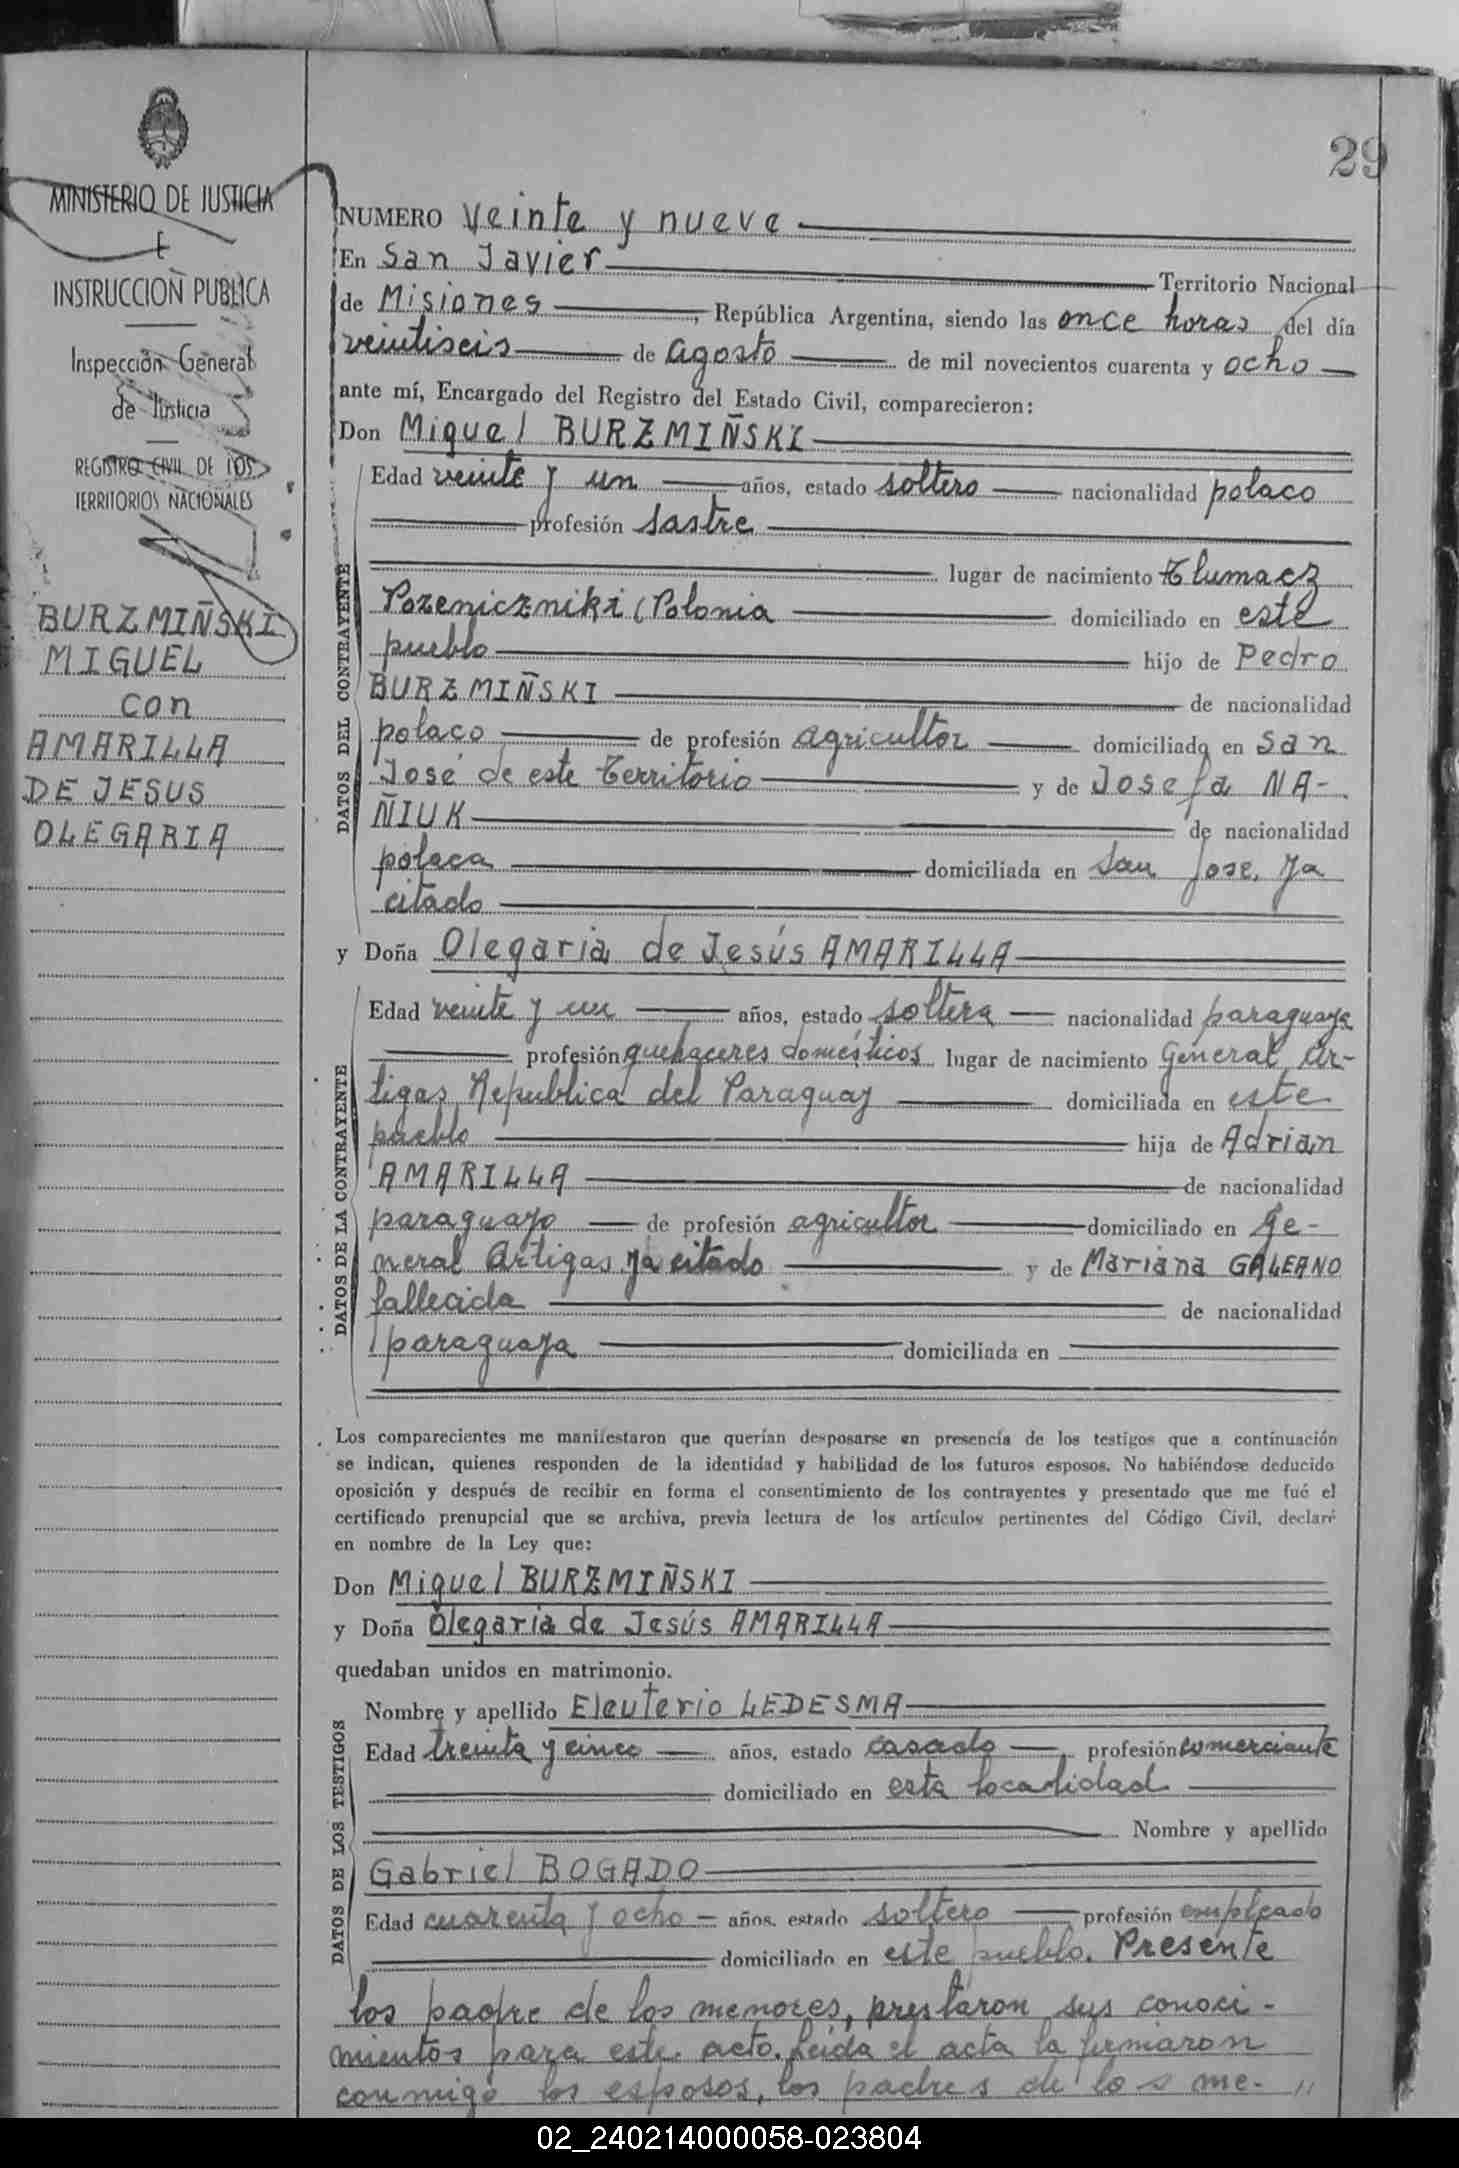 29
MINISTERIO DE JUSTICIA
E
INSTRUCCION PUBLICA
Inspección General
de Justicia
REGISTRO CIVIL DE LOS
TERRITORIOS NACIONALES
BURZMIÑSKI
MIGUEL
con
AMARILLA
DE JESUS
OLEGARIA
NUMERO veinte y nueve
En San Javier Territorio Nacional
de Misiones, República Argentina, siendo las once horas del día
veintiseis de agosto de mil novecientos cuarenta y ocho
ante mí, Encargado del Registro del Estado Civil, comparecieron:
Don Miguel BURZMIÑSKI
DATOS DEL CONTRAYENTE
Edad veinte y un años, estado soltero nacionalidad polaco
profesión sastre
lugar de nacimiento Tlumacz
Pozeniczniki (Polonia domiciliado en este
pueblo hijo de Pedro
BURZMIÑSKI de nacionalidad
polaco de profesión agricultor domiciliado en San
José de este Territorio y de Josefa NA-
ÑIUK de nacionalidad
polaca domiciliada en San Jose, ya
citado
y Doña Olegaria de Jesús AMARILLA
DATOS DE LA CONTRAYENTE
Edad veinte y un años, estado soltera nacionalidad paraguaya
profesión quehaceres domésticos lugar de nacimiento General Ar-
tigas Republica del Paraguay domiciliada en este
pueblo hija de Adrian
AMARILLA de nacionalidad
paraguayo de profesión agricultor domiciliado en Ge-
neral Artigas ya citado y de Mariana GALEANO
fallecida de nacionalidad
paraguaya domiciliada en
Los comparecientes me manifestaron que querían desposarse en presencia de los testigos que a continuación
se indican, quienes responden de la identidad y habilidad de los futuros esposos. No habiéndose deducido
oposición y después de recibir en forma el consentimiento de los contrayentes y presentado que me fué el
certificado prenupcial que se archiva, previa lectura de los artículos pertinentes del Código Civil, declaré
en nombre de la Ley que:
Don Miguel BURZMIÑSKI
y Doña Olegaria de Jesús AMARILLA
quedaban unidos en matrimonio.
DATOS DE LOS TESTIGOS
Nombre y apellido Eleuterio LEDESMA
Edad treinta y cinco años, estado casado profesión comerciante
domiciliado en esta localidad
Nombre y apellido
Gabriel BOGADO
Edad cuarenta y ocho años, estado soltero profesión empleado
domiciliado en este pueblo. Presente
los padre de los menores, prestaron sus conoci-
mientos para este acto. Leida el acta la firmaron
conmigo los esposos, los padres de los me-"
02_240214000058-023804